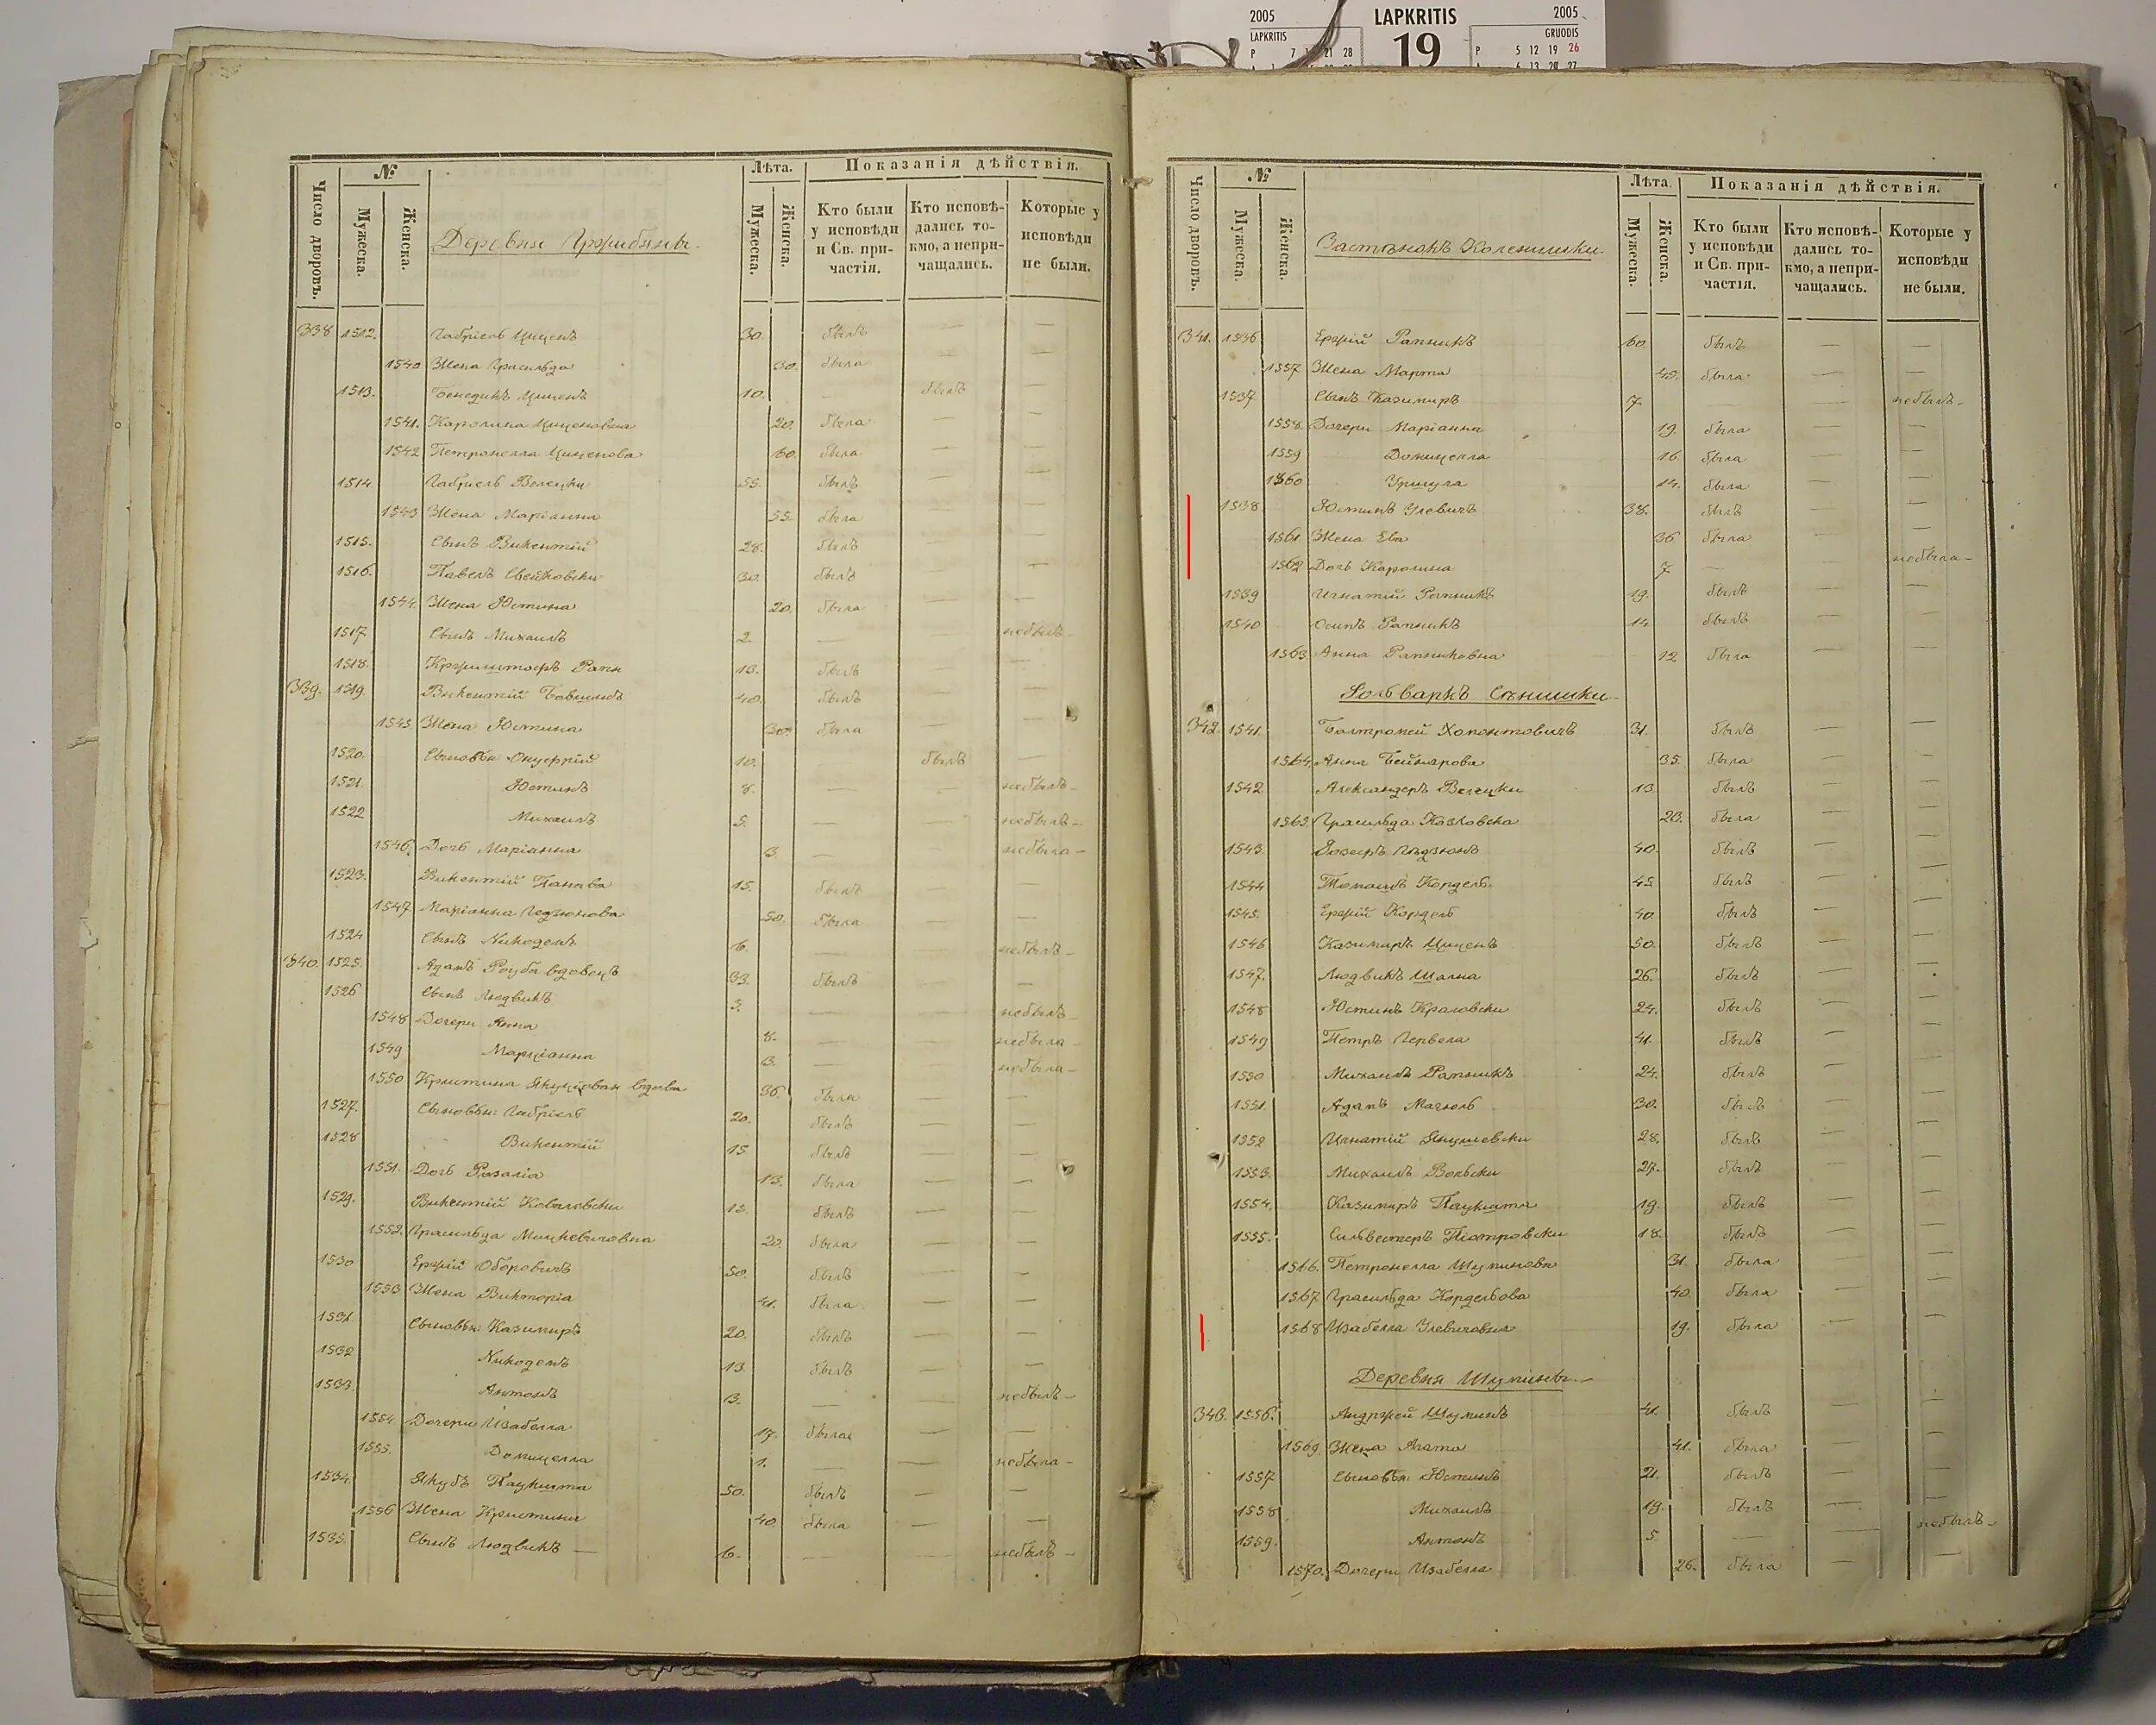 2005 LAPKRITIS 2005
LAPKRITIS 19 GRUODIS
P 7 21 28 P 5 12 19 26
6 13 20 27
Число дворовъ. № Лѣта. Показанія дѣйствія.
Мужеска. Женска. Деревня Мужеска. Женска. Кто были у исповѣди и Св. причастія. Кто исповѣдались токмо, а непричащались. Которые у исповѣди не были.
338 1512. Габріель Циценъ 30. былъ — —
1540 Жена Грасильда 30. была — —
1513. Бенедиктъ Циценъ 10. — былъ —
1541. Каролина Циценовна 20. была — —
1542 Петронелла Циценова 60. была — —
1514. Габріель Велецки 55. былъ — —
1543 Жена Маріанна 55. была — —
1515. Сынъ Викентій 28. былъ — —
1516. Павелъ 30. былъ — —
1544. Жена Юстина 20. была — —
1517 Сынъ Михаилъ 2. — небылъ —
1518. Кржиштофъ 13. былъ — —
339. 1519. Викентій 40. былъ — —
1545. Жена Юстина 30. была — —
1520. Сыновья: Онуфрій 10. — былъ —
1521. Юстинъ 8. — — небылъ —
1522 Михаилъ 5. — — небылъ —
1546. Дочь Маріанна 3. — — небыла —
1523. Викентій 15. былъ — —
1547 Маріанна 50. была — —
1524 Сынъ Никодемъ 6. — — небылъ —
340. 1525. Адамъ вдовецъ 33. былъ — —
1526 Сынъ Людвикъ 3. — — небылъ —
1548 Дочери Анна 8. — — небыла —
1549 Марціанна 3. — — небыла —
1550 Криштина вдова 36. была — —
1527. Сыновья: Габріель 20. былъ — —
1528 Викентій 15 былъ — —
1551. Дочь Розалія 13. была — —
1529. Викентій Ковалевски 12. былъ — —
1552. Грасильда Мицкевичовна 20. была — —
1530 Ержій 50. былъ — —
1553 Жена Викторія 41. была — —
1531. Сыновья: Казимиръ 20. былъ — —
1532 Никодемъ 13. былъ — —
1533. Антонъ 3. — небылъ —
1554. Дочери Изабелла 17. была — —
1555. Домицелла 1. — — небыла —
1534. Якубъ Паукшта 50. былъ — —
1556 Жена Криштина 40 была — —
1535. Сынъ Людвикъ — 6. — — небылъ —
Число дворовъ. № Лѣта. Показанія дѣйствія.
Мужеска. Женска. Застѣнокъ Коленишки. Мужеска. Женска. Кто были у исповѣди и Св. причастія. Кто исповѣдались токмо, а непричащались. Которые у исповѣди не были.
341. 1536 Ержій Рапшикъ 60. былъ — —
1557 Жена Марта 45. была — —
1537 Сынъ Казимиръ 7. — небылъ —
1558. Дочери Маріанна 19. была — —
1559 Домицелла 16. была — —
1560 Уршула 14. была — —
1538. Юстинъ Улевичъ 38. былъ — —
1561 Жена Ева 36 была — —
1562 Дочь Каролина 7 — небыла —
1539 Игнатій Рапшикъ 19. былъ — —
1540 Осипъ Рапшикъ 14 былъ — —
1563. Анна Рапшиковна 12 была — —
Фольваркъ Сѣнишки
342. 1541. Балтромей Хоронтовичъ 31. былъ — —
1564. Анна Бейнарова 35. была — —
1542 Александеръ Велецки 13. былъ — —
1565. Грасильда Козловска 23. была — —
1543 Іозефъ 40. былъ — —
1544 Томашъ Кордель 45 былъ — —
1545. Ержій Кордель 40 былъ — —
1546 Казимиръ Циценъ 50. былъ — —
1547. Людвикъ Шална 26. былъ — —
1548 Юстинъ Краговски 24. былъ — —
1549 Петръ Червела 41. былъ — —
1550 Михаилъ Рапшикъ 24. былъ — —
1551. Адамъ 30. былъ — —
1552 Игнатій Янушевски 28. былъ — —
1553. Михаилъ Вольски 27. былъ — —
1554. Казимиръ Паукшта 19. былъ — —
1555. Сильвестеръ Піотровски 18. былъ — —
1566. Петронелла Шуминова 31. была — —
1567 Грасильда Корделева 40. была — —
1568 Изабелла Улевичовна 19. была — —
Деревня Шумины.
343. 1556. Андржей Шуминъ 41. былъ — —
1569. Жена Агата 41. была — —
1557 Сыновья: Юстинъ 21. былъ — —
1558 Михаилъ 19. былъ — —
1559. Антонъ 5. — — небылъ —
1570. Дочери Изабелла 26. была — —